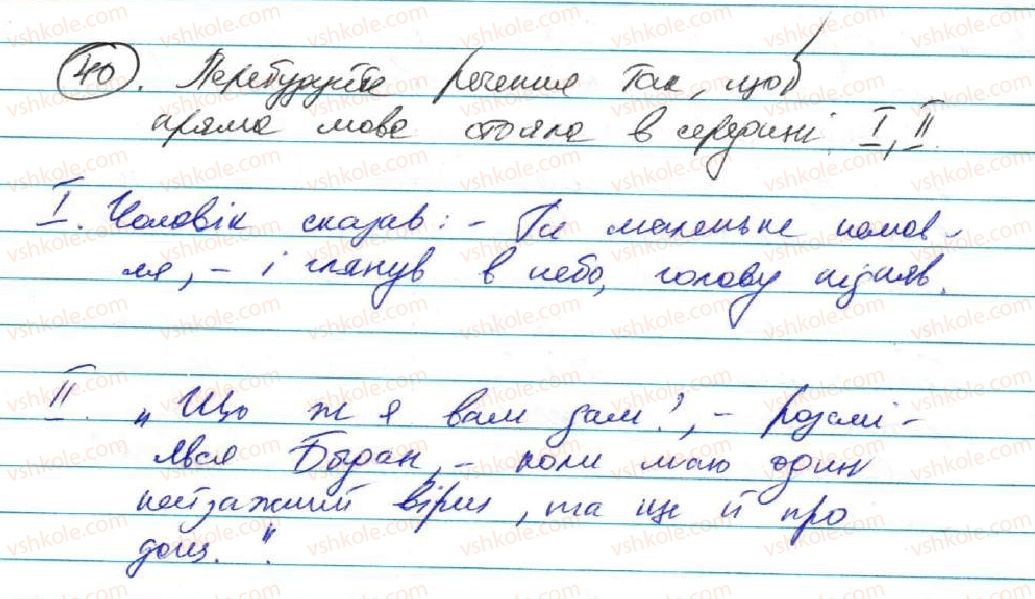 40. Перебудуйте речення так, щоб
пряма мова стояла в середині. I, II.
I. Чоловік сказав: - Ти маленьке немов-
ля, - і глянув в небо, голову підняв.
II. "Що ж я вам дам?, - розсмі-
явся Буран, - коли маю один
пейзажний вірш, та ще й про
дощ.".